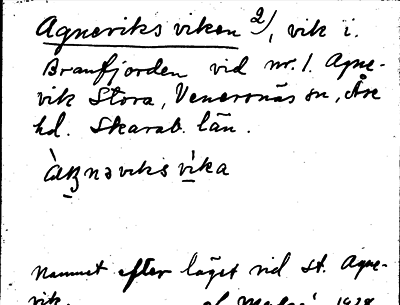 Agneviks viken 2), vik i.
Branfjorden vid nr. 1. Agne-
vik Stora, Venersnäs sn, Åse
hd. Skarab. län.
vika
Namnet efter läget vid St. Agne-
vik.